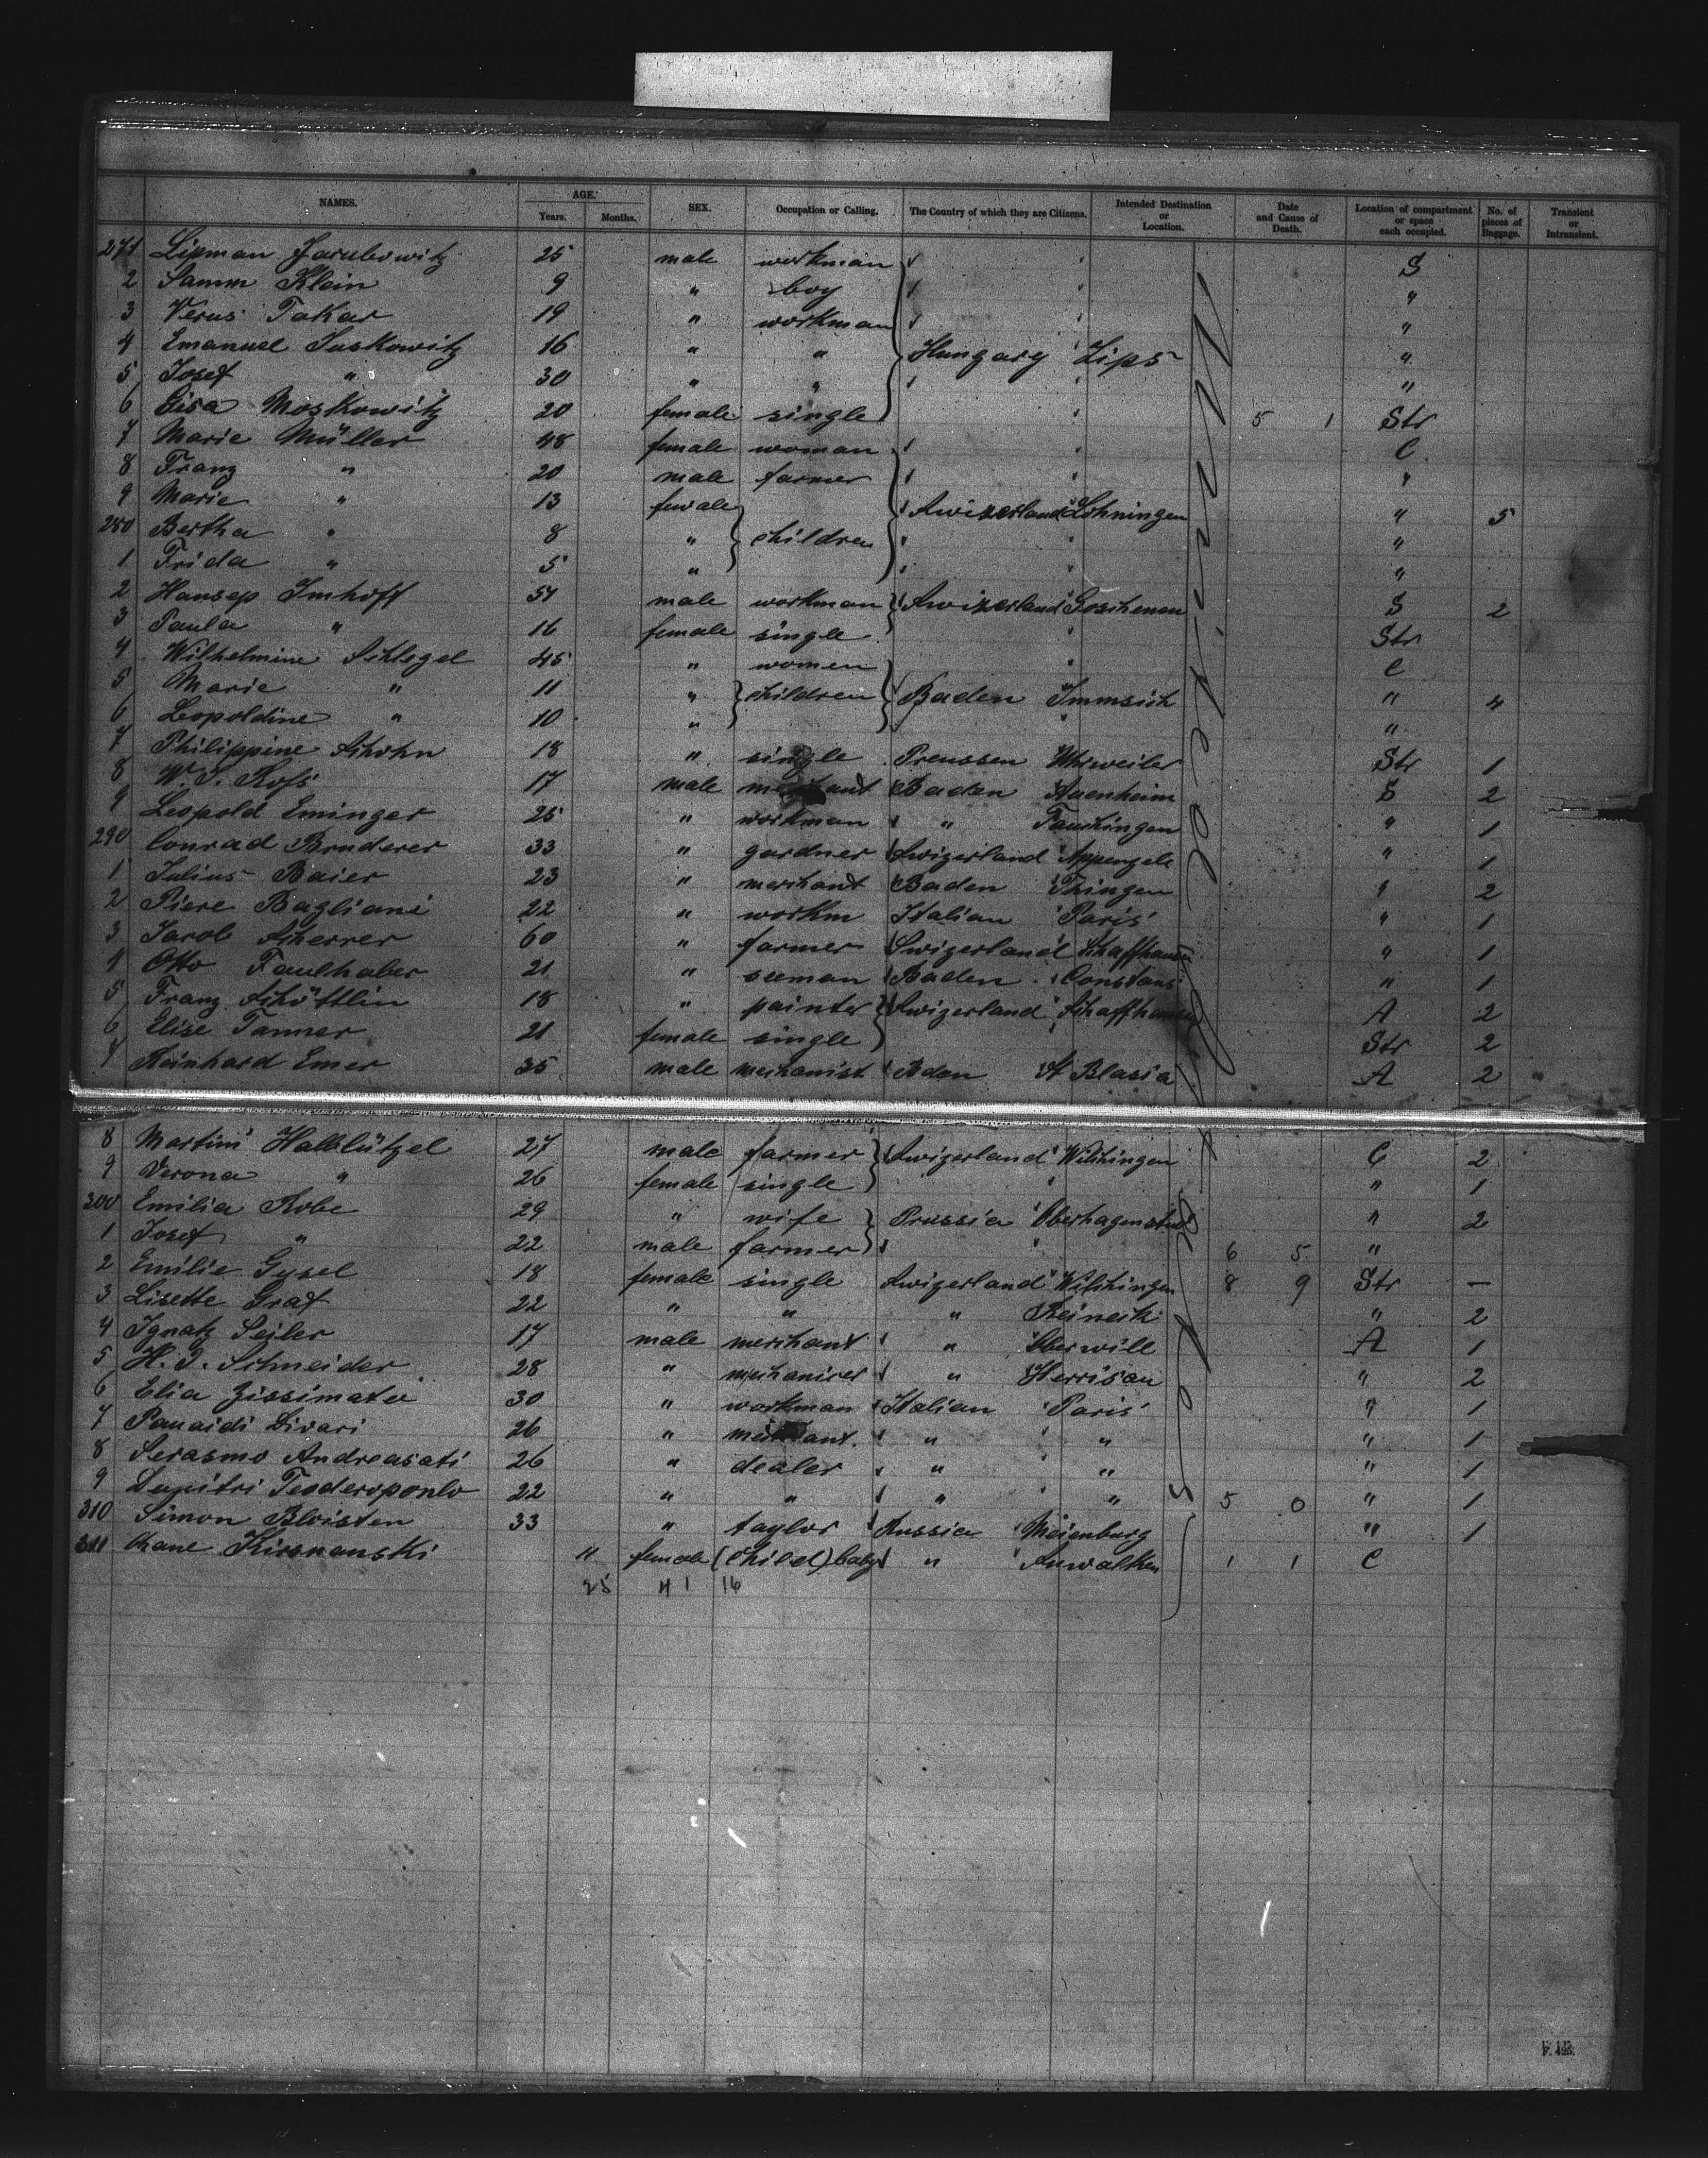 NAMES. AGE. SEX. Occupation or Calling. The Country of which they are Citizens. Intended Destination or Location. Date and Cause of Death. Location of compartment or space each occupied. No. of pieces of Baggage. Transient or Intransient.
Years. Months.
271 Lipman Jacubowitz 25 male workman S
2 Samm Klein 9 " boy "
3 Verus Takar 19 " workman "
4 Emanuel Juskowitz 16 " " Hungary Zips "
5 Josef " 30 " " "
6 Lisa Moskowitz 20 female single 5 1 Str
7 Marie Müller 48 female woman C
8 Franz " 20 male farmer "
9 Marie " 13 female Swizerland Löhningen " 5
280 Bertha " 8 " children "
1 Frida " 5 " "
2 Hansep Imhoff 54 male workman Swizerland Goschenen S 2
3 Paula " 16 female single Str
4 Wilhelmine Schlegel 45 " women C
5 Marie " 11 " children Baden Immsich " 4
6 Leopoldine " 10 " "
7 Philippine Schohn 18 " single Preussen Uhrweiler Str 1
8 W. S. Rofs 17 male merchant Baden Auenheim S 2
9 Leopold Eminger 25 " workman " " 1
290 Conrad Bruderer 33 " gardner Swizerland Appenzele " 1
1 Julius Baier 23 " merchant Baden " 2
2 Piere Bagliani 22 " workm Italian Paris " 1
3 Jacob Scherrer 60 " farmer Swizerland Schaffhausen " 1
4 Otto Faulhaber 21 " seeman Baden Constans " 1
5 Franz Schöttlin 18 " painter Swizerland Schaffhausen A 2
6 Elise Tanner 21 female single Str 2
7 Reinhard Emer 35 male mechanist Bden St Blasia A 2
8 Martin Hallützel 27 male farmer Swizerland Wilchingen C 2
9 Verona " 26 female single " 1
300 Emilia Kobe 29 " wife Prussia " 2
1 Josef " 22 male farmer 6 5 "
2 Emilie Gysel 18 female single Swizerland Wilchingen 8 9 Str —
3 Lisette Graf 22 " " " Reineck " 2
4 Ignatz Seiler 17 male merchant " Oberwill A 1
5 H. J. Schneider 28 " mechaniser " Herrisau " 2
6 Elia Zissimatei 30 " workman Italian Paris " 1
7 Panaidi Livari 26 " merchant " " " 1
8 Serasmo Andreasati 26 " dealer " " " 1
9 Dimitri Teoderopoulo 22 " " " " 5 0 " 1
310 Simon Bloisten 33 " taylor Russia Meienburg " 1
311 Chane 11 female (Child) baby " Suwalken 1 1 C
25 41 16